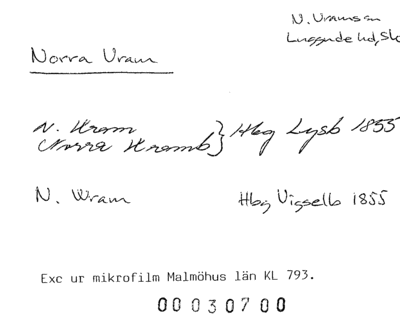 N. Vrams sn
Luggude hd, Sk
Norra Vram
N. Hram
(Norra Hramb } Hbg Lysb 1855
N. Wram Hbg Vigselb 1855
Exc ur mikrofilm Malmöhus län KL 793.
00030700